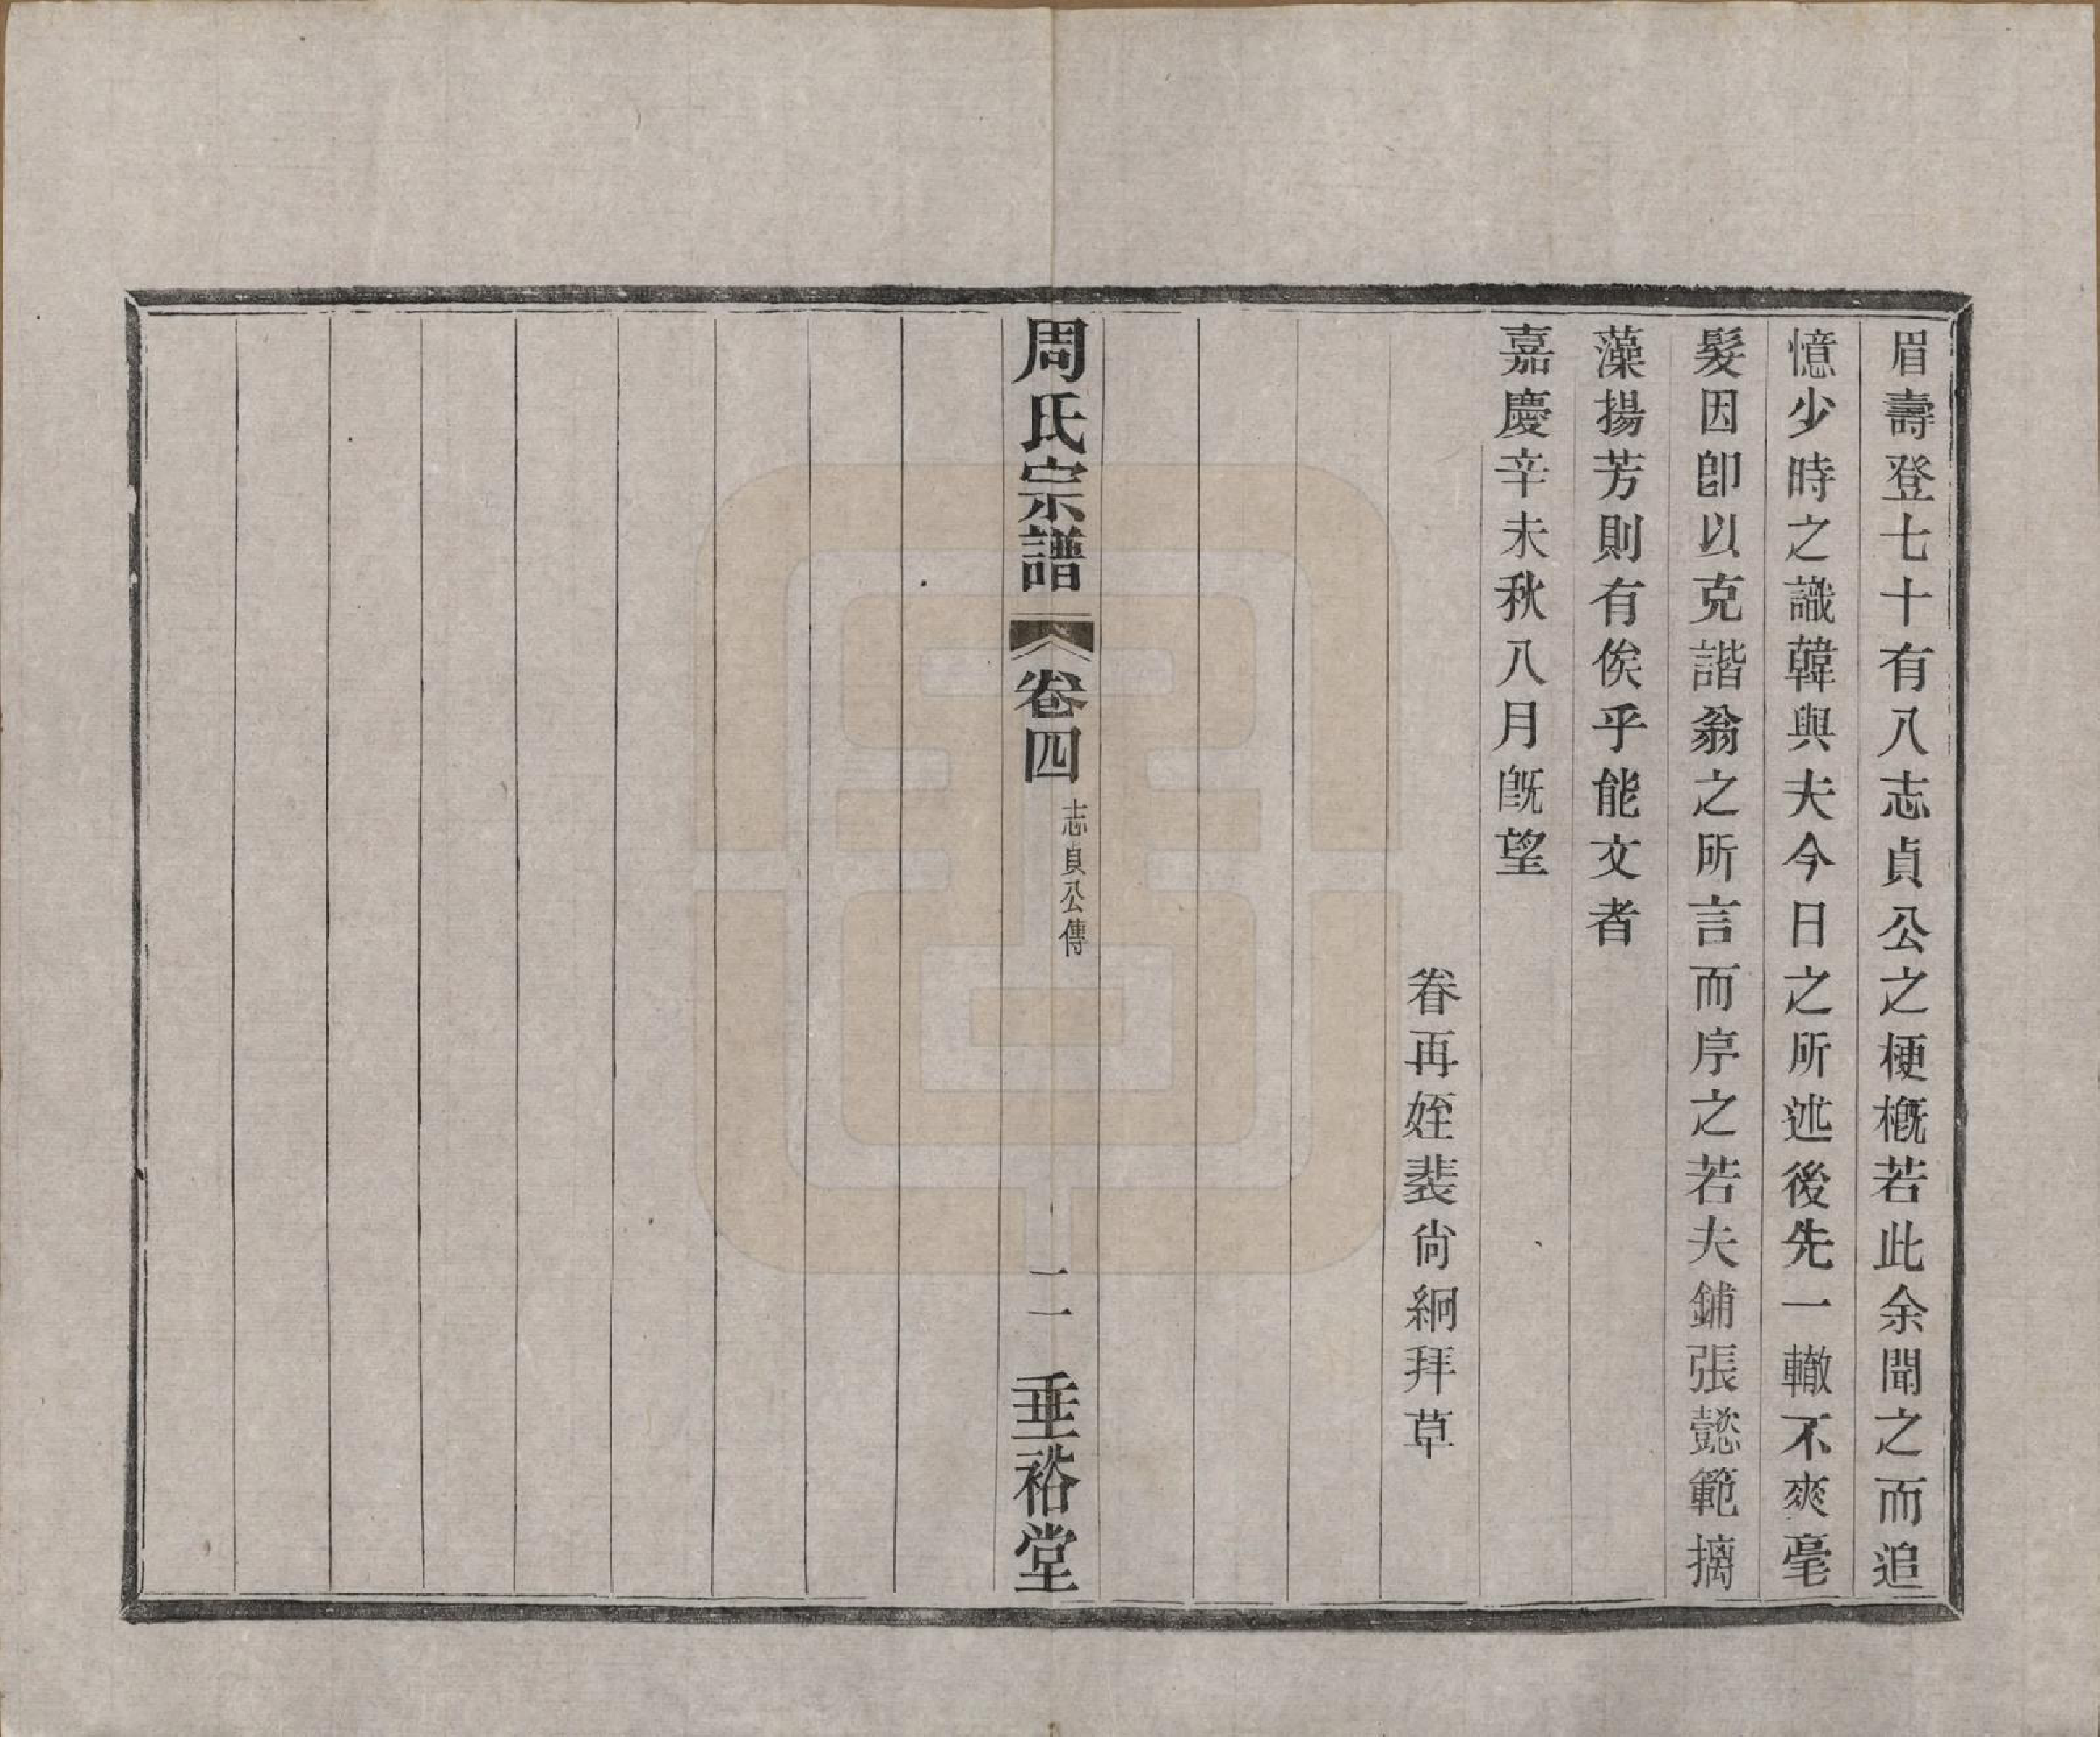 眉壽登七十有八志貞公之梗槪若此余聞之而追
憶少時之識韓與夫今日之所述後先一轍不爽毫
髮因卽以克諧翁之所言而序之若夫鋪張懿範摛
藻揚芳則有俟乎能文者
嘉慶辛未秋八月旣望
眷再姪裴尙絅拜草
周氏宗譜 卷四 志貞公傳 二 垂裕堂